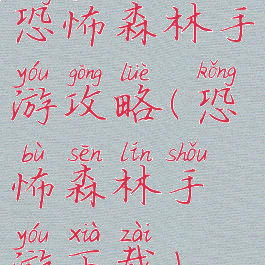 恐怖森林手
yóu gōng lüè kǒng
游攻略(恐
bù sēn lín shǒu
怖森林手
yóu xià zài
游下载)